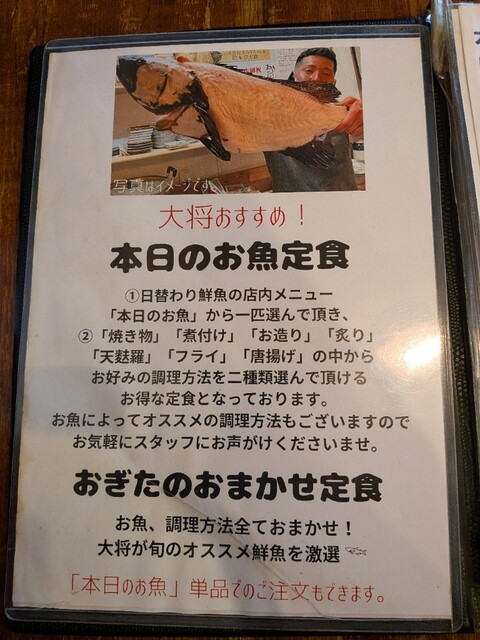 写真はイメージです。
大将おすすめ！
本日のお魚定食
①日替わり鮮魚の店内メニュー
「本日のお魚」から一匹選んで頂き、
②「焼き物」「煮付け」「お造り」「炙り」
「天麩羅」「フライ」「唐揚げ」の中から
お好みの調理方法を二種類選んで頂ける
お得な定食となっております。
お魚によってオススメの調理方法もございますので
お気軽にスタッフにお声がけくださいませ。
おぎたのおまかせ定食
お魚、調理方法全ておまかせ！
大将が旬のオススメ鮮魚を激選
「本日のお魚」単品でのご注文もできます。